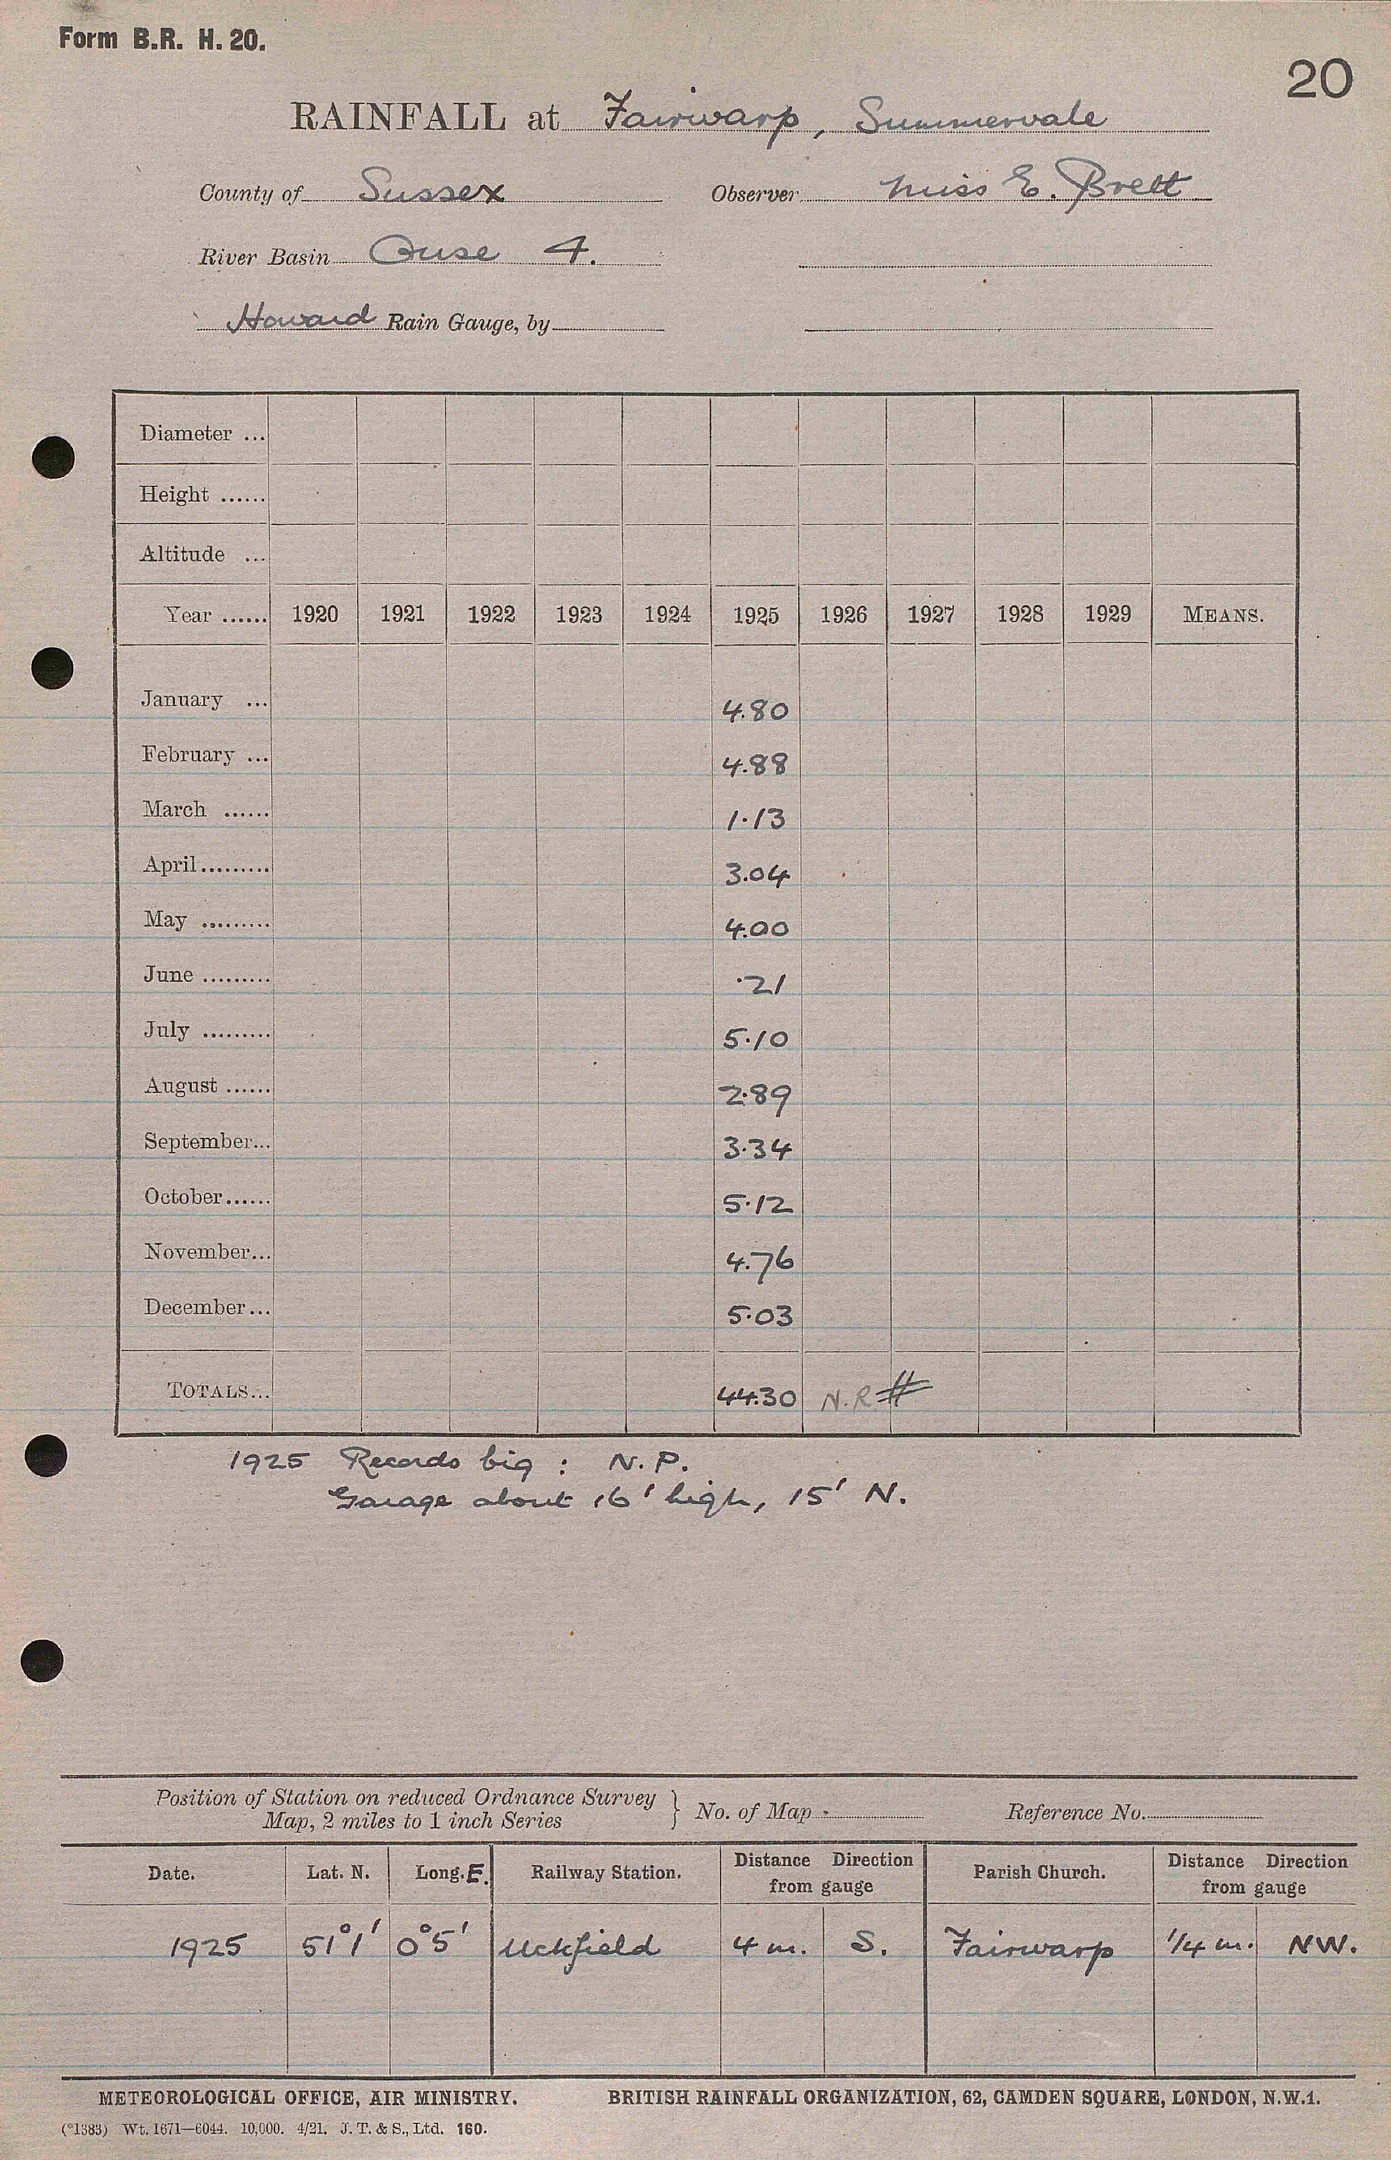 Form B.R. H. 20.
20
RAINFALL at Fairwarp, Summervale
County of Sussex Observer Miss E. Brett
River Basin Ouse 4.
Howard Rain Gauge, by
Diameter ...
Height ......
Altitude ...
Year ...... 1920 1921 1922 1923 1924 1925 1926 1927 1928 1929 MEANS.
January ... 4.80
February ... 4.88
March ...... 1.13
April ......... 3.04
May ......... 4.00
June ......... .21
July ......... 5.10
August ...... 2.89
September... 3.34
October...... 5.12
November... 4.76
December... 5.03
TOTALS... 44.30 N.R. #
1925 Records big : N.P.
Garage about 16' high, 15' N.
Position of Station on reduced Ordnance Survey
Map, 2 miles to 1 inch Series } No. of Map Reference No.
Date. Lat. N. Long. E. Railway Station. Distance Direction from gauge Parish Church. Distance Direction from gauge
1925 51°1' 0°5' Uckfield 4 m. S. Fairwarp 1/4 m. NW.
METEOROLOGICAL OFFICE, AIR MINISTRY. BRITISH RAINFALL ORGANIZATION, 62, CAMDEN SQUARE, LONDON, N.W.1.
(*1383) Wt. 1671—6044. 10,000. 4/21. J. T. & S., Ltd. 160.